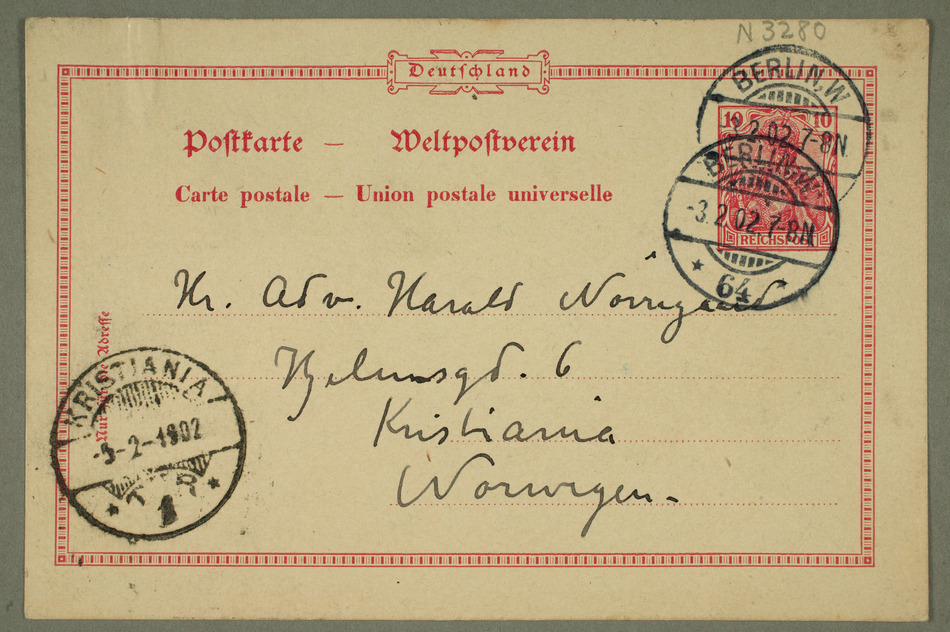 N 3280
Deutschland
Postkarte — Weltpostverein
Carte postale — Union postale universelle
10 10
REICHSPOST
BERLIN, W
2.02.7-8N.
BERLIN, W
-3.2.02.7-8N
* 64
Hr. Adv. Harald Nørregaard
Hjelmsgd. 6
Kristiania
Norwegen.
Nur für die Adresse
KRISTIANIA
-5-2-1902
1